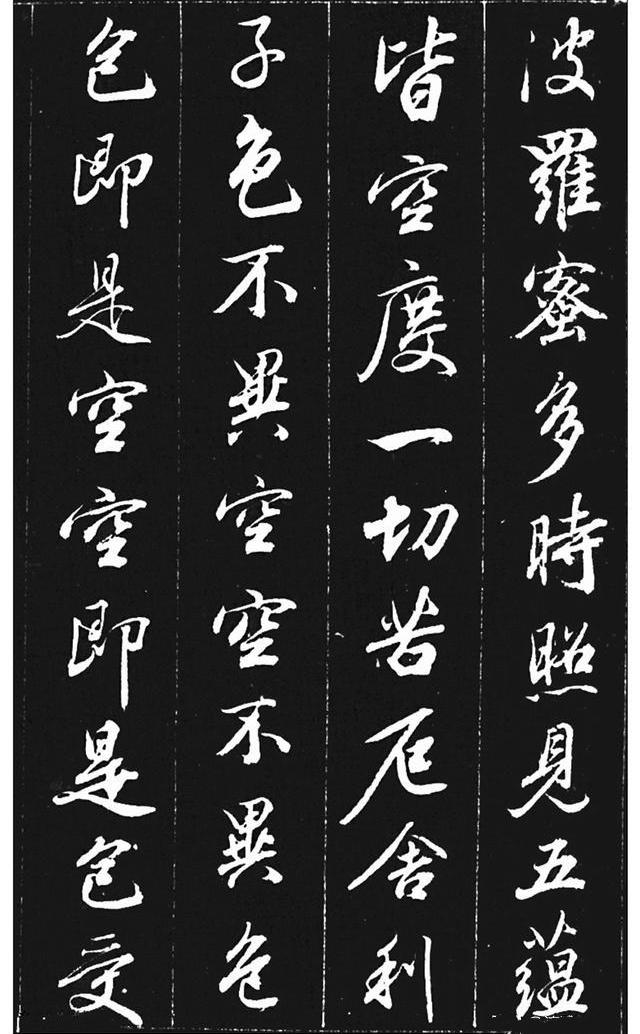 波羅蜜多時照見五蘊
皆空度一切苦厄舍利
子色不異空空不異色
色即是空空即是色受